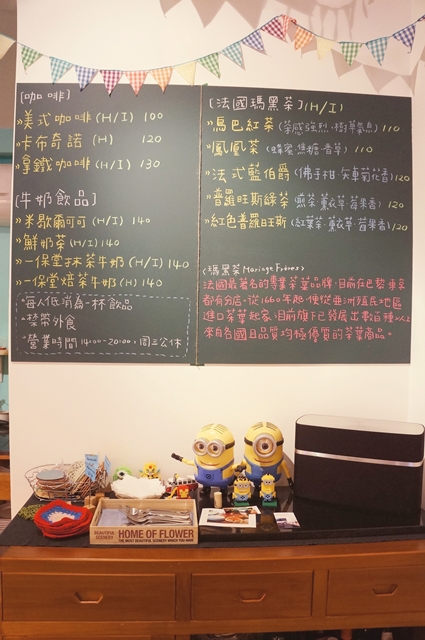 [咖啡]
»美式咖啡(H/I) 100
»卡布奇諾(H) 120
»拿鐵咖啡(H/I) 130
[牛奶飲品]
»米歇爾可可(H/I) 140
»鮮奶茶(H/I) 140
»一保堂抹茶牛奶(H/I) 140
»一保堂焙茶牛奶(H) 140
*每人低消為一杯飲品
*禁帶外食
*營業時間14:00-20:00,周三公休
[法國瑪黑茶](H/I)
»烏巴紅茶(茶感強烈·樹草氣息) 110
»鳳凰茶(蜂蜜·焦糖·香草) 110
»法式藍伯爵(佛手柑·矢車菊花香) 120
»普羅旺斯綠茶(煎茶·薰衣草·莓果香) 120
»紅色普羅旺斯(紅葉茶·薰衣草·莓果香) 120
<瑪黑茶Mariage Frères>
法國最著名的專業茶葉品牌,目前在巴黎東京
都有分店,從1660年起,便從亞洲殖民地區
進口茶葉起家,目前旗下已發展出數百種以上
來自各國且品質均極優質的茶葉商品。
BEAUTIFUL SCENERY
HOME OF FLOWER
THE MOST BEAUTIFUL SCENERY WHICH YOU